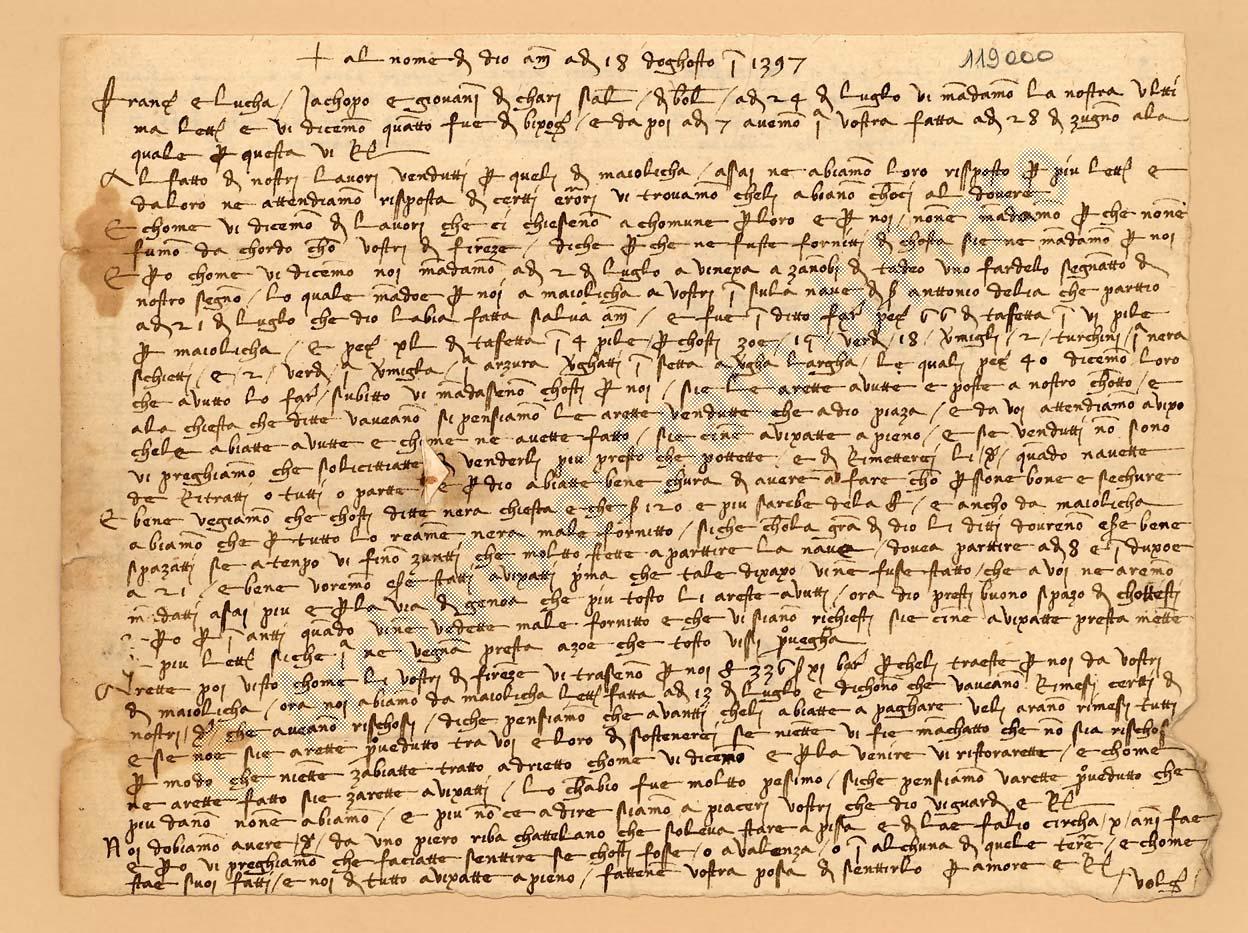 + al nome di dio am̄ adi 18 doghosto ī 1397
119000
Franc̄ e Lucha / Jachopo e giovanī di chari sal̄ / di bol̄ / adi 24 di Luglo vi mādamō la nostra ultti
ma lett̄ e vi dicemō quātto fue di bixoḡ / e da poi adi 7 avemō j vostra fatta adi 28 di zugnō ala
quale p̱ questa vi R̄
Al fatto di nostri lavori vendutti p̱ queli di maiolicha / assai ne abiamō loro rissposto p̱ piu lett̄ e
daloro ne attendiamō rissposta di certti erōri vi trovamō cheli abianō choci al dovere
E chome vi dicemō di lavori che ci chiesenō a chomune p̱ loro e p̱ noi / none mādamo p̱ che nonē
fumō da chordo chō vostri di firēze / diche p̱ che ne fuste fornitti di chosta sie ne mādamō p̱ noi
E p̱o chome vi dicemō noi mādamō adi 2 di luglo a vinexa a zanobi di tadeo uno fardello segnatto di
nostro segnō / lo quale mādoe p̱ noi a maiolicha a vostri ī sula nave di s̄ anttonio delia che parttio
adi 21 di luglo che dio labia fatta salva am̄ / e fue ī ditto far̄ pec̄ 66 di taffetta ī vi pile
p̱ maiolicha / E pec̄ xl di taffetta ī 4 pile p̱ chosti zoe / 19 verdi / 18 / v̄migli / 2 / turchini / j nera
schietti / e / 2 / verdi j v̄migla / j arzura v̄ghatti ī setta a v̄gha largha / le quali pec̄ 40 dicemō loro
che avutto lo far̄ / subitto vi mādassenō chosti p̱ noi / sie le arette avutte e poste a nostro chōtto / e
ala chiesta che ditte vaveanō si pensiamō le arette vendutte che a dio piaza / e da voi attendiamo avixo
chele abiatte avutte e chome ne avette fatto / sie cinē avixatte a pieno / e se vendutti nō sono
vi preghiamō che solicittiatte di venderli piu presto che pottette / e di Rimetterci li d̄ / quādo navette
de Ritratti o tutti o partte / e p̱ dio abiatte bene chura di avere a fare chō p̱ssone bone e sechure
E bene vegiamō che chosti ditte nera chiesta e che s̄ 120 e piu sarebe dela / e ancho da maiolicha
abiamō che p̱ tutto lo reamē nera male fornitto / siche chōla grā di dio li ditti doureno esse bene
spazatti se a tenpo vi sinō zuntti che moltto stette a parttire la nave / dovea parttire adi 8 e ī duxoe
a 21 / e bene voremō esse statti avixatti p̄ma che tale dixaxo vine fusse statto / che a voi ne aremō
mādatti asai piu e p̱ la via di genoa che piu tosto li areste avutti / ora dio presti buono spazo di chottesti
E p̱o p̱ ī antti quādo vinē vedette male fornitto e che vi sianō richiesti sie cinē avixatte presta mētte
p̱ piu lett̄ siche j ne vegnā presta azoe che tosto vissi p̱vegha
Arette poi visto chome li vostri di firēze vi trassenō p̱ noi 336 s̄ xi bar̄ p̱cheli traeste p̱ noi da vostri
di maiolicha / ora noi abiamō da maiolicha lett̄ fatta adi 13 di luglo e dichonō che vaveanō Rimesi certti di
nostri / d̄ che aveanō rischosi / diche pensiamō che avantti cheli abiatte a paghare veli aranō rimesi tutti
e se noe sie arette p̱vedutto tra voi e loro di sostenerci se niētte vi fie māchatto che nō sia rischos
p̱ modo che niētte zabiatte tratto adrietto chome vi dicemō e p̱ la venire vi ristorarette / e chome
ne arette fatto sie zarette avixatti / lo chābio fue moltto pessimo / siche pensiamō varette p̱vedutto che
piu danō none abiamo / e piu nō ce a dire siamō a piaceri vostri che dio vi guardi e R̄
Noi dobiamō avere / d̄ / da uno piero riba chattelano che soleva stare a pissa e di lae falio circha / x / anī fae
e p̱o vi preghiamō che faciatte senttire se chosti fosse / o a valenza / o ī alchuna di quele terē / e chome
stae suoi fatti / e noi di tutto avixatte a pieno / fattenē vostra possa di senttirlo p̱ amore e R̄
/ volḡ